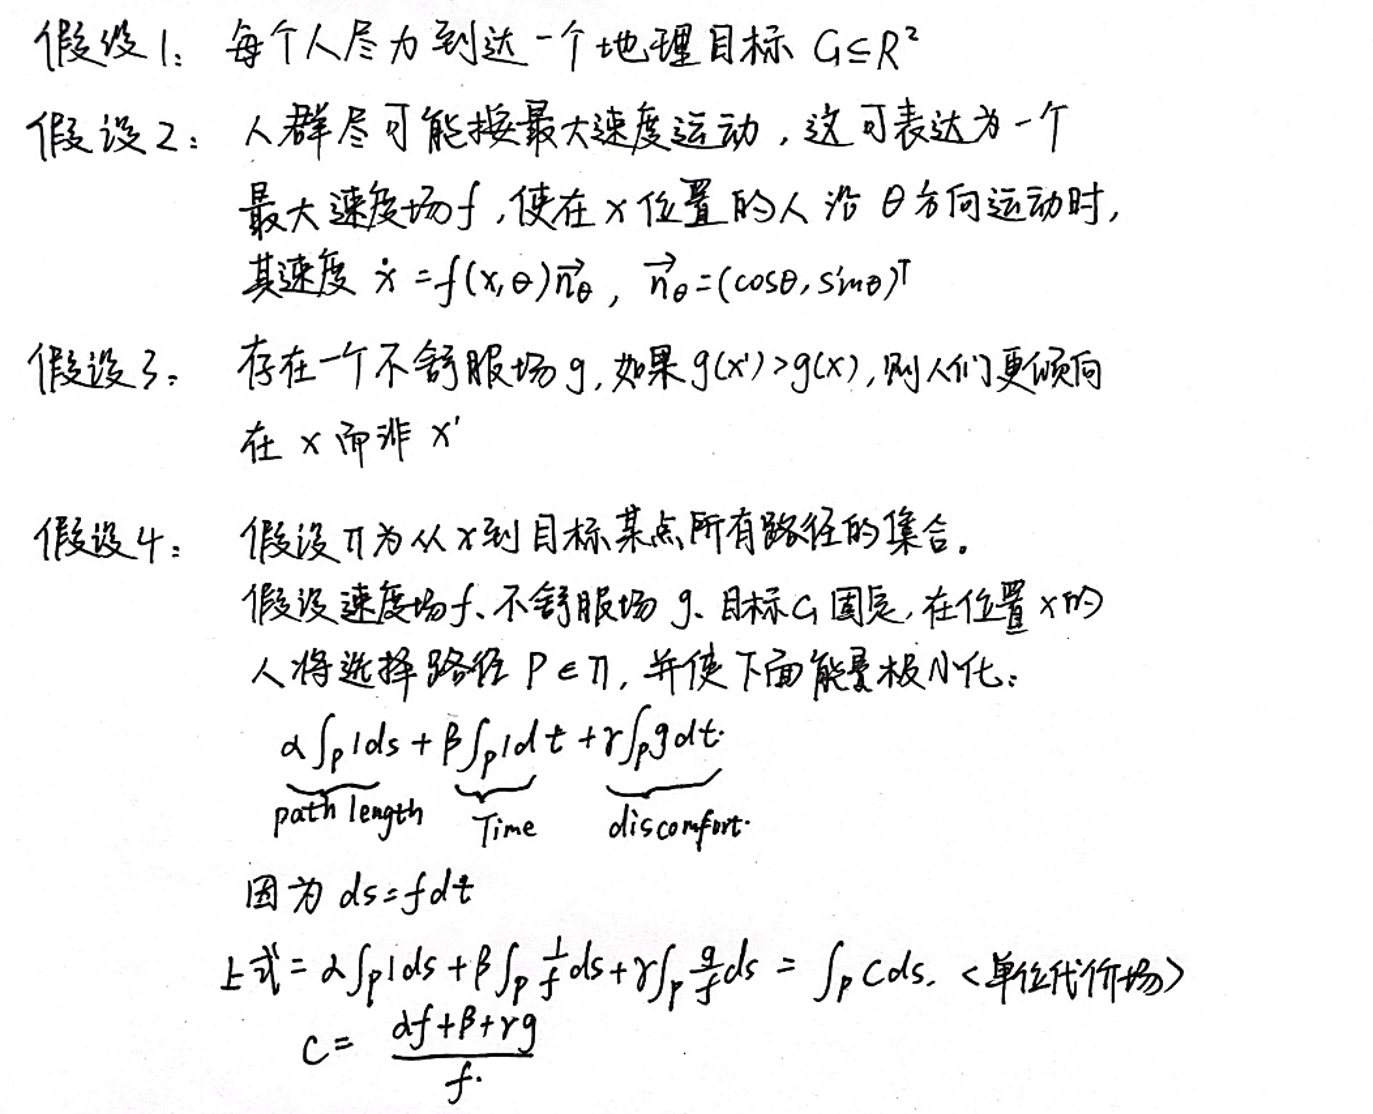 假设1: 每个人尽力到达一个地理目标 G⊆R²
假设2: 人群尽可能按最大速度运动,这可表达为一个
最大速度场f,使在x位置的人沿θ方向运动时,
其速度 ẋ=f(x,θ)n⃗_θ, n⃗_θ=(cosθ,sinθ)ᵀ
假设3: 存在一个不舒服场g,如果g(x')>g(x),则人们更倾向
在x而非x'
假设4: 假设π为从x到目标某点所有路径的集合。
假设速度场f、不舒服场g、目标G固定,在位置x的
人将选择路径P∈π,并使下面能量极小化:
α∫_P 1ds+β∫_P 1dt+γ∫_P gdt.
path length Time discomfort.
因为 ds=fdt
上式=α∫_P 1ds+β∫_P \frac{1}{f}ds+γ∫_P \frac{g}{f}ds=∫_P Cds. <单位代价场>
C=\frac{αf+β+γg}{f}.